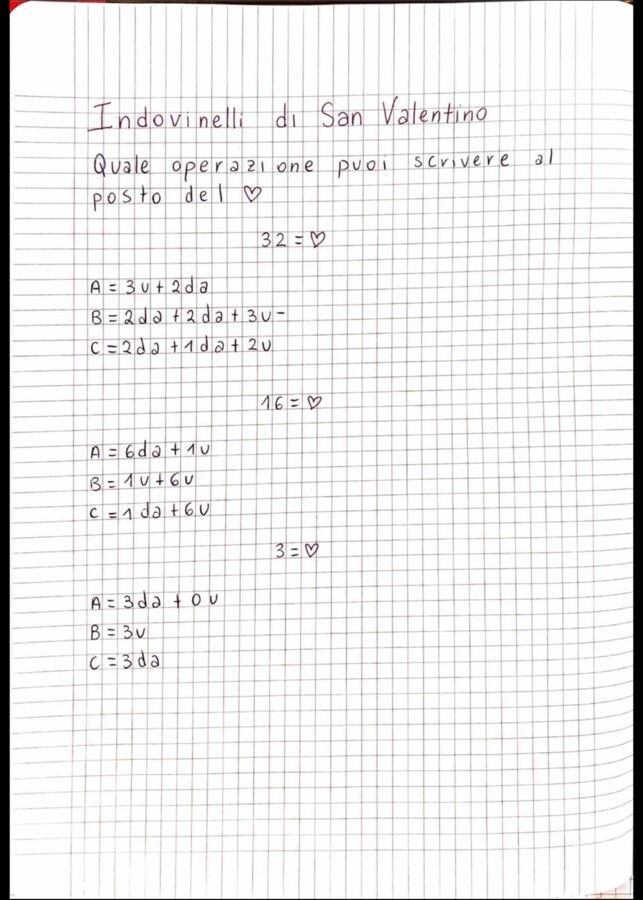 Indovinelli di San Valentino
Quale operazione puoi scrivere al
posto del ♡
32 = ♡
A = 3u + 2da
B = 2da + 2da + 3u -
C = 2da + 1da + 2u
16 = ♡
A = 6da + 1u
B = 1u + 6u
C = 1da + 6u
3 = ♡
A = 3da + 0u
B = 3u
C = 3da